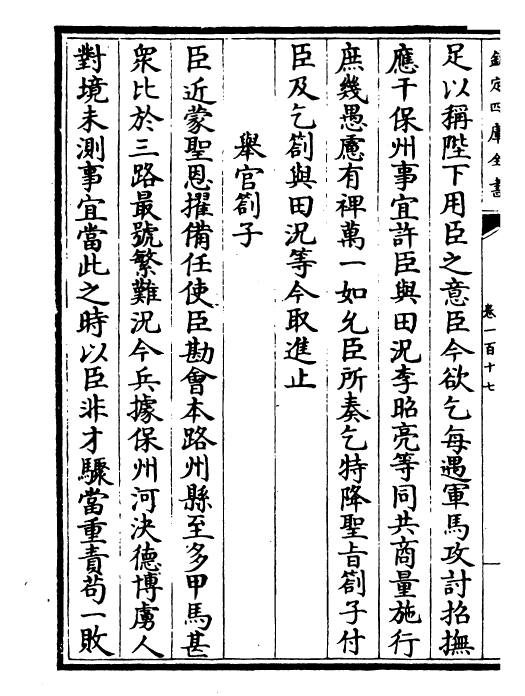 欽定四庫全書
卷一百十七
足以稱陛下用臣之意臣今欲乞每遇軍馬攻討招撫
應干保州事宜許臣與田況李昭亮等同共商量施行
庶幾愚慮有裨萬一如允臣所奏乞特降聖旨劄子付
臣及乞劄與田況等今取進止
舉官劄子
臣近蒙聖恩擢備任使臣勘會本路州縣至多甲馬甚
衆比於三路最號繁難況今兵據保州河決德博虜人
對境未測事宜當此之時以臣非才驟當重責茍一敗